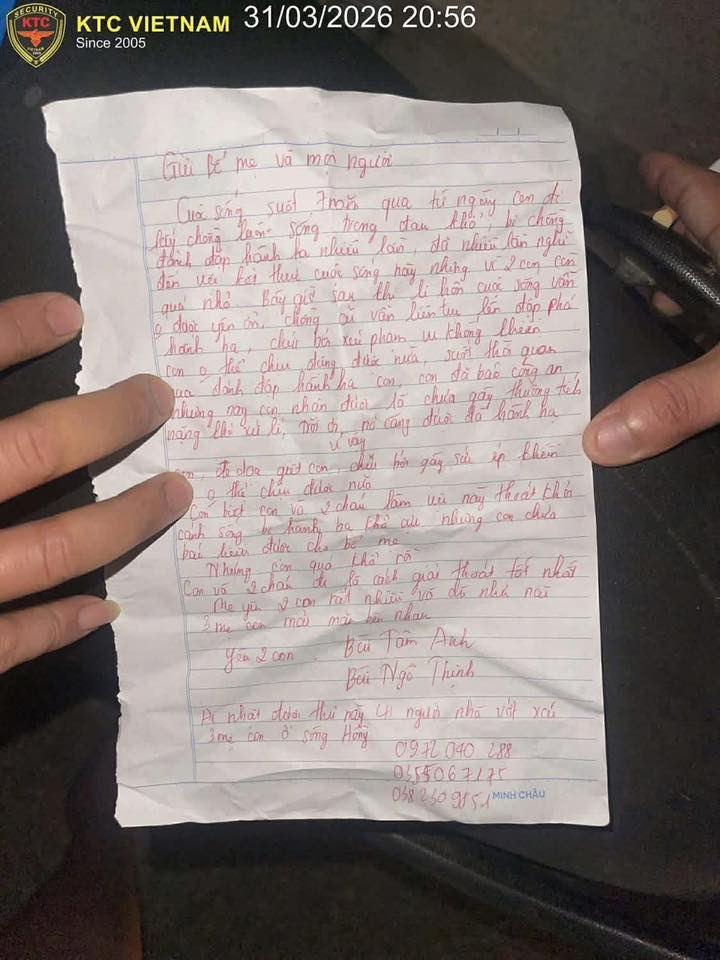 KTC VIETNAM
Since 2005
31/03/2026 20:56
SECURITY
KTC
Gửi Bố mẹ và mọi người
Cuộc sống suốt 7 năm qua từ ngày con đi
lấy chồng luôn sống trong đau khổ, bị chồng
đánh đập hành hạ nhiều lần đã nhiều lần nghĩ
đến với kết thúc cuộc sống này nhưng vì 2 con còn
quá nhỏ. Bây giờ sau khi li hôn cuộc sống vẫn
o được yên ổn, chồng cũ vẫn liên tục đến đập phá
hành hạ, chửi bới xúc phạm khống khiến
con o thể chịu đựng được nữa, suốt thời gian
qua đánh đập hành hạ con, con đã báo công an
nhưng nay con nhận được là chưa gây thương tích
nặng khó xử lí, trời ơi, nó càng được đà hành hạ
vì vậy
con, đe doạ giết con, chửi bới gây sức ép khiến
o thể chịu được nữa
Con biết con và 2 cháu làm việc này thoát khỏi
cảnh sống bị hành hạ khổ cực nhưng con chưa
báo hiếu được cho bố mẹ
Nhưng con quá khổ rồi
Con và 2 cháu đi là cách giải thoát tốt nhất
Mẹ yêu 2 con rất nhiều và dù như nào
3 mẹ con mãi mãi bên nhau
Yêu 2 con. Bùi Tâm Anh
Bùi Ngô Thịnh
Ai nhặt được thư này LH người nhà vớt xác
3 mẹ con ở sông Hồng
0972 040 288
0355067175
MINH CHÂU